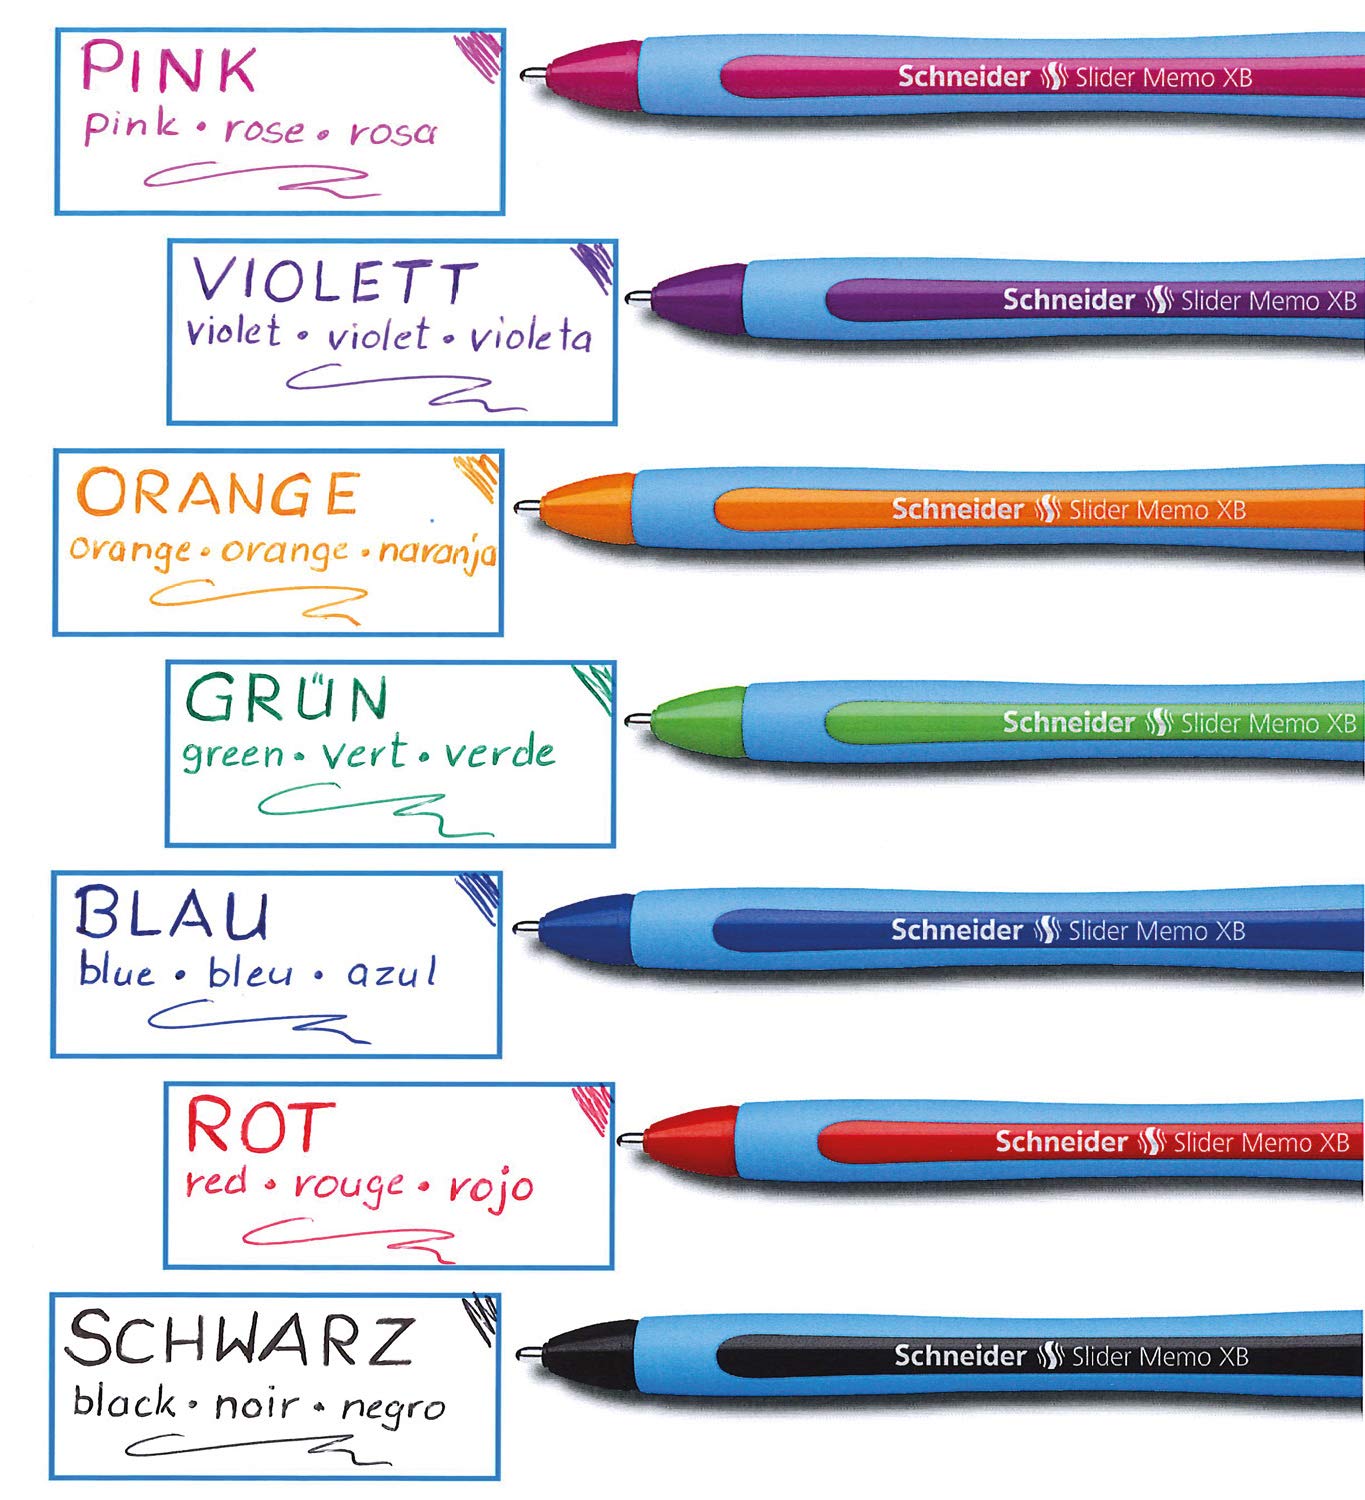 PINK
pink • rose • rosa
Schneider Slider Memo XB
VIOLETT
violet • violet • violeta
Schneider Slider Memo XB
ORANGE
orange • orange • naranja
Schneider Slider Memo XB
GRÜN
green • vert • verde
Schneider Slider Memo XB
BLAU
blue • bleu • azul
Schneider Slider Memo XB
ROT
red • rouge • rojo
Schneider Slider Memo XB
SCHWARZ
black • noir • negro
Schneider Slider Memo XB